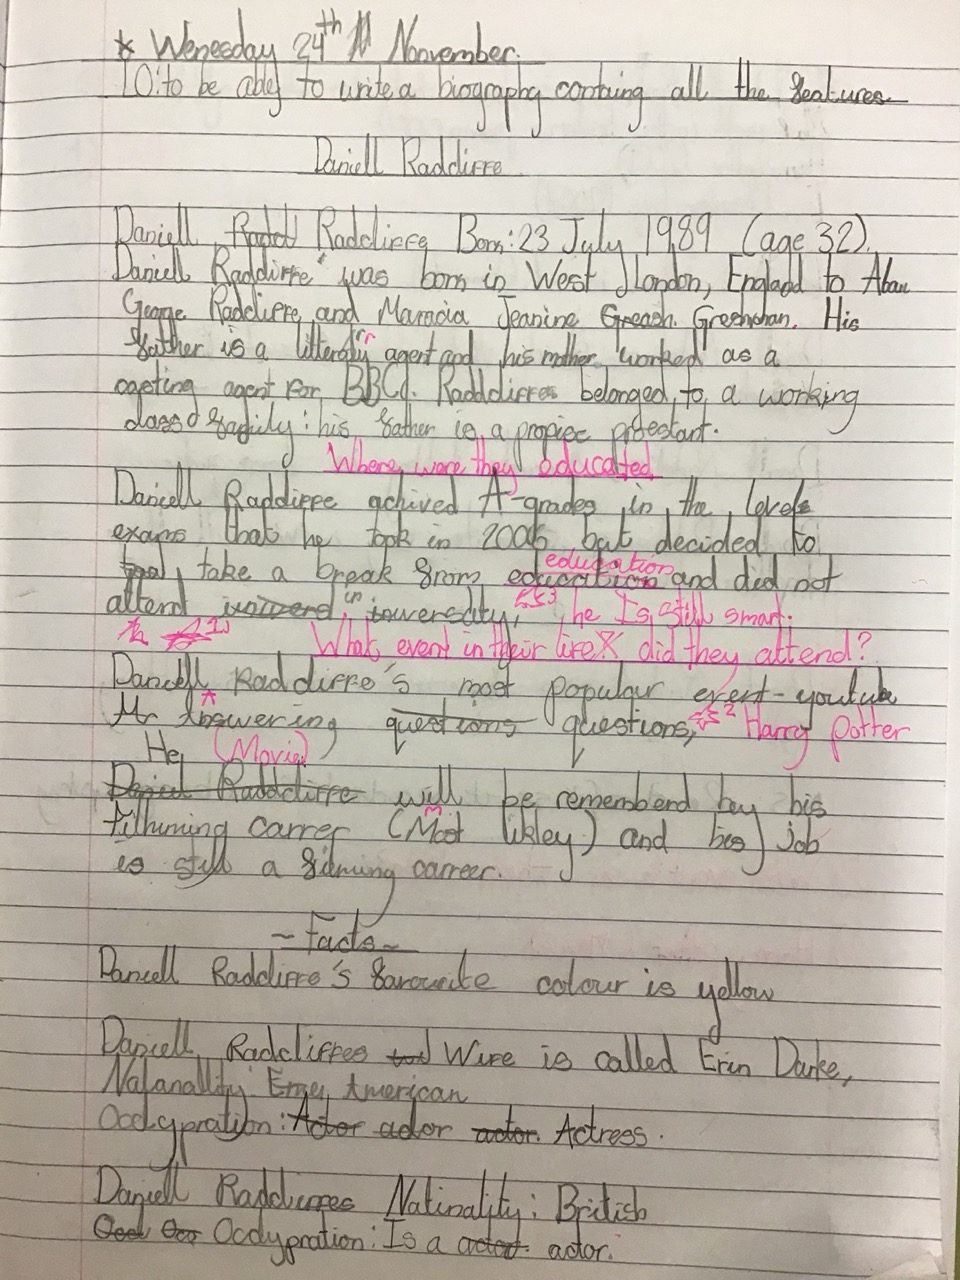 * Wenesday 24th Nonvember.
LO: to be able to write a biography containg all the features
Daniell Raddliffe
Daniell Radcliffe Born: 23 July 1989 (age 32).
Daniell Raddliffe was born in West London, England to Alan
George Raddliffe and Maracia Jeanine Greach. Greshman. His
father is a litteraly agent and his mother worked as a
casting agent for BBC. Radddliffes belonged, to a working
class family: his father is, a protestant.
Where were they educated
Daniell Raddliffe achived A-grades in the levels
exams that he took in 2006 but decided to
education
take a break from education and did not
attend university, he Is still smart.
What, event in their life did they attend?
Daniell Radcliffe's most popular event - youtube
Answering questions questions, 2 Harry Potter
He, (Movie)
Daniel Raddcliffe will be rememberd by his
filmming carrer (Most likley) and his job
is still a filming carreer.
~ Facts ~
Daniell Radcliffe's favourite colour is yellow
Daniell, Radcliffes Wife is called Erin Darke,
Natanallity: American
Occypration: Actor actor actor. Actress.
Daniell Raddliffes Natinality: British
Occypration: Is a actor. actor.